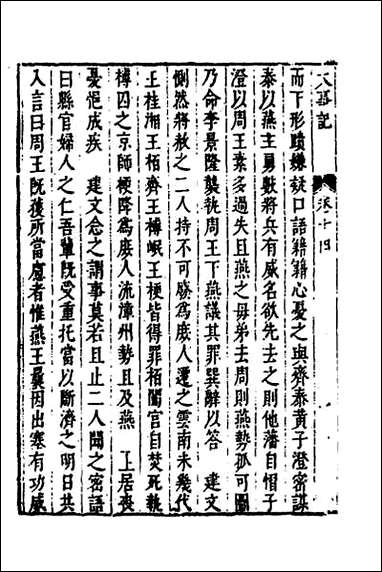 大事記 卷十四
而下形蹟嫌疑口語籍籍心憂之與齊泰黄子澄密謀
泰以燕王勇數將兵有威名欲先去之則他藩自惴子
澄以周王素多過失且燕之母弟去周則燕勢孤可圖
乃命李景隆襲執周王下燕議其罪巽辭以答 建文
惻然將赦之二人持不可廢為庶人遷之雲南未幾代
王桂湘王栢齊王榑岷王楩皆得罪栢闔宮自焚死執
榑囚之京師楩隆為庶人流漳州勢且及燕 上居喪
憂悒成疾 建文念之謂事莫若且止二人聞之密語
曰縣官婦人之仁吾輩既受重托當以斷濟之明日共
入言曰周王既獲所當慮者惟燕王曩因出塞有功威